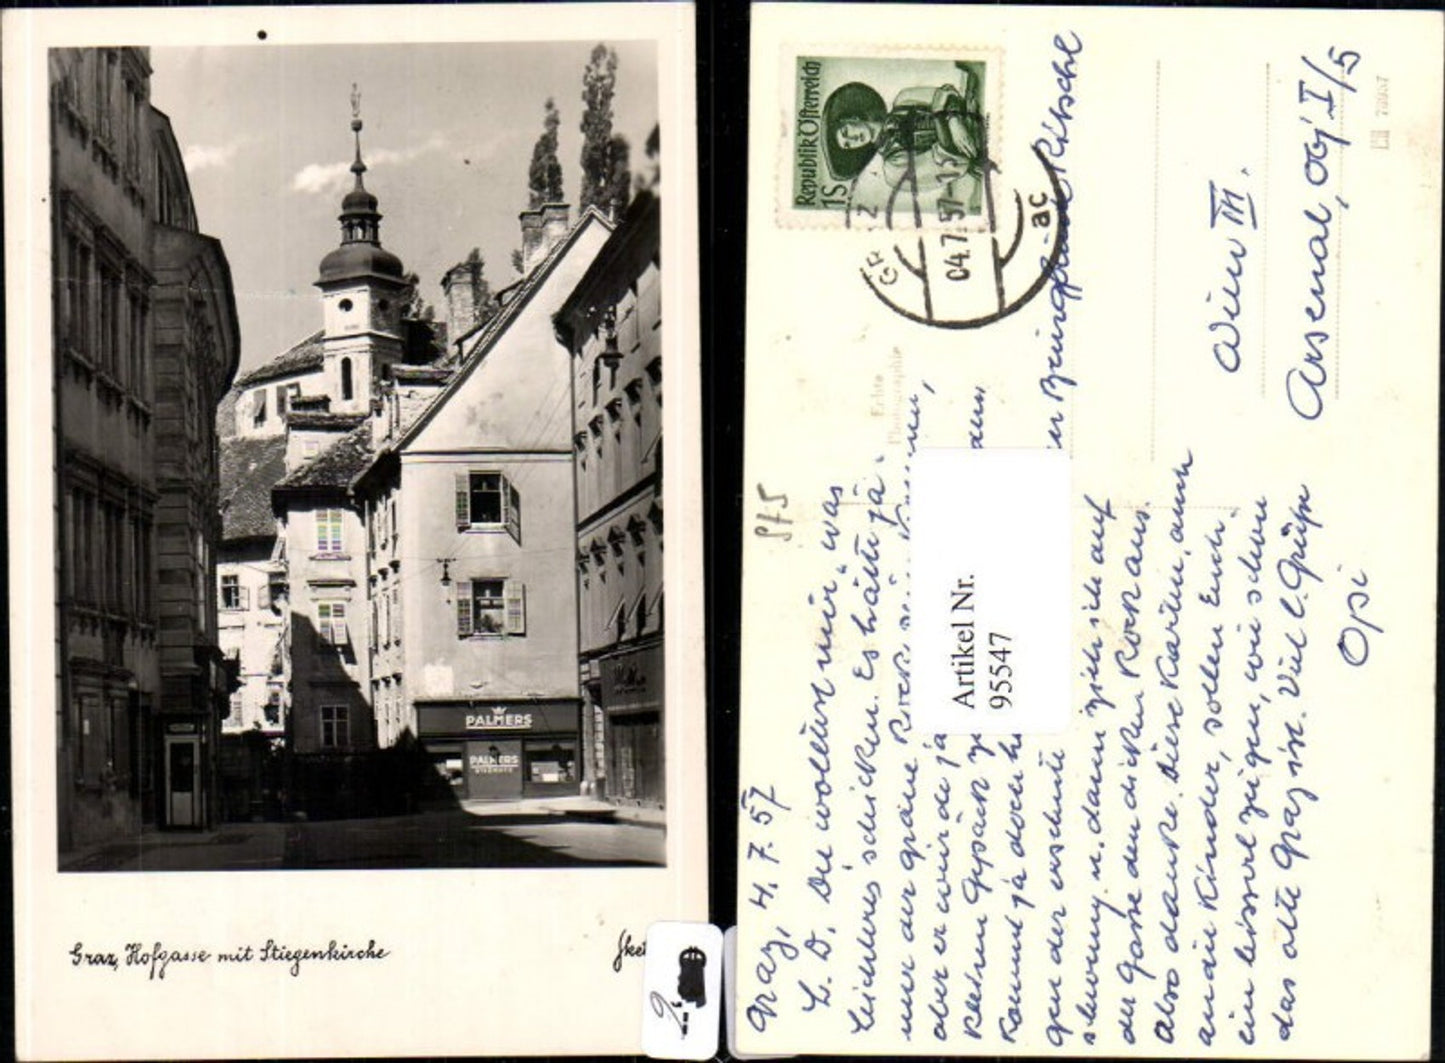 PALMERS
PALMERS
Graz, Hofgasse mit Stiegenkirche
2,-
Republik Österreich
1S
GRAZ
04.7.57-15
ac
Echte
Photographie
Artikel Nr.
95547
575
Graz, 4. 7. 57
L. D. Du wolltest mir was
leichteres schicken. Es hätte ja
nur der graue Rock
aber er würde ja
keinen Gepäck
kommt ja doch
gen der
u. dann ziehe ich auf
der Gasse den dicken Rock aus.
Also danke. Diese Karten, auch
an die Kinder, sollen Euch
ein bisserl zeigen, wie schön
das alte Graz ist. Viel l. Grüße
Opi
Wien III.
Arsenal, Obj. I/5